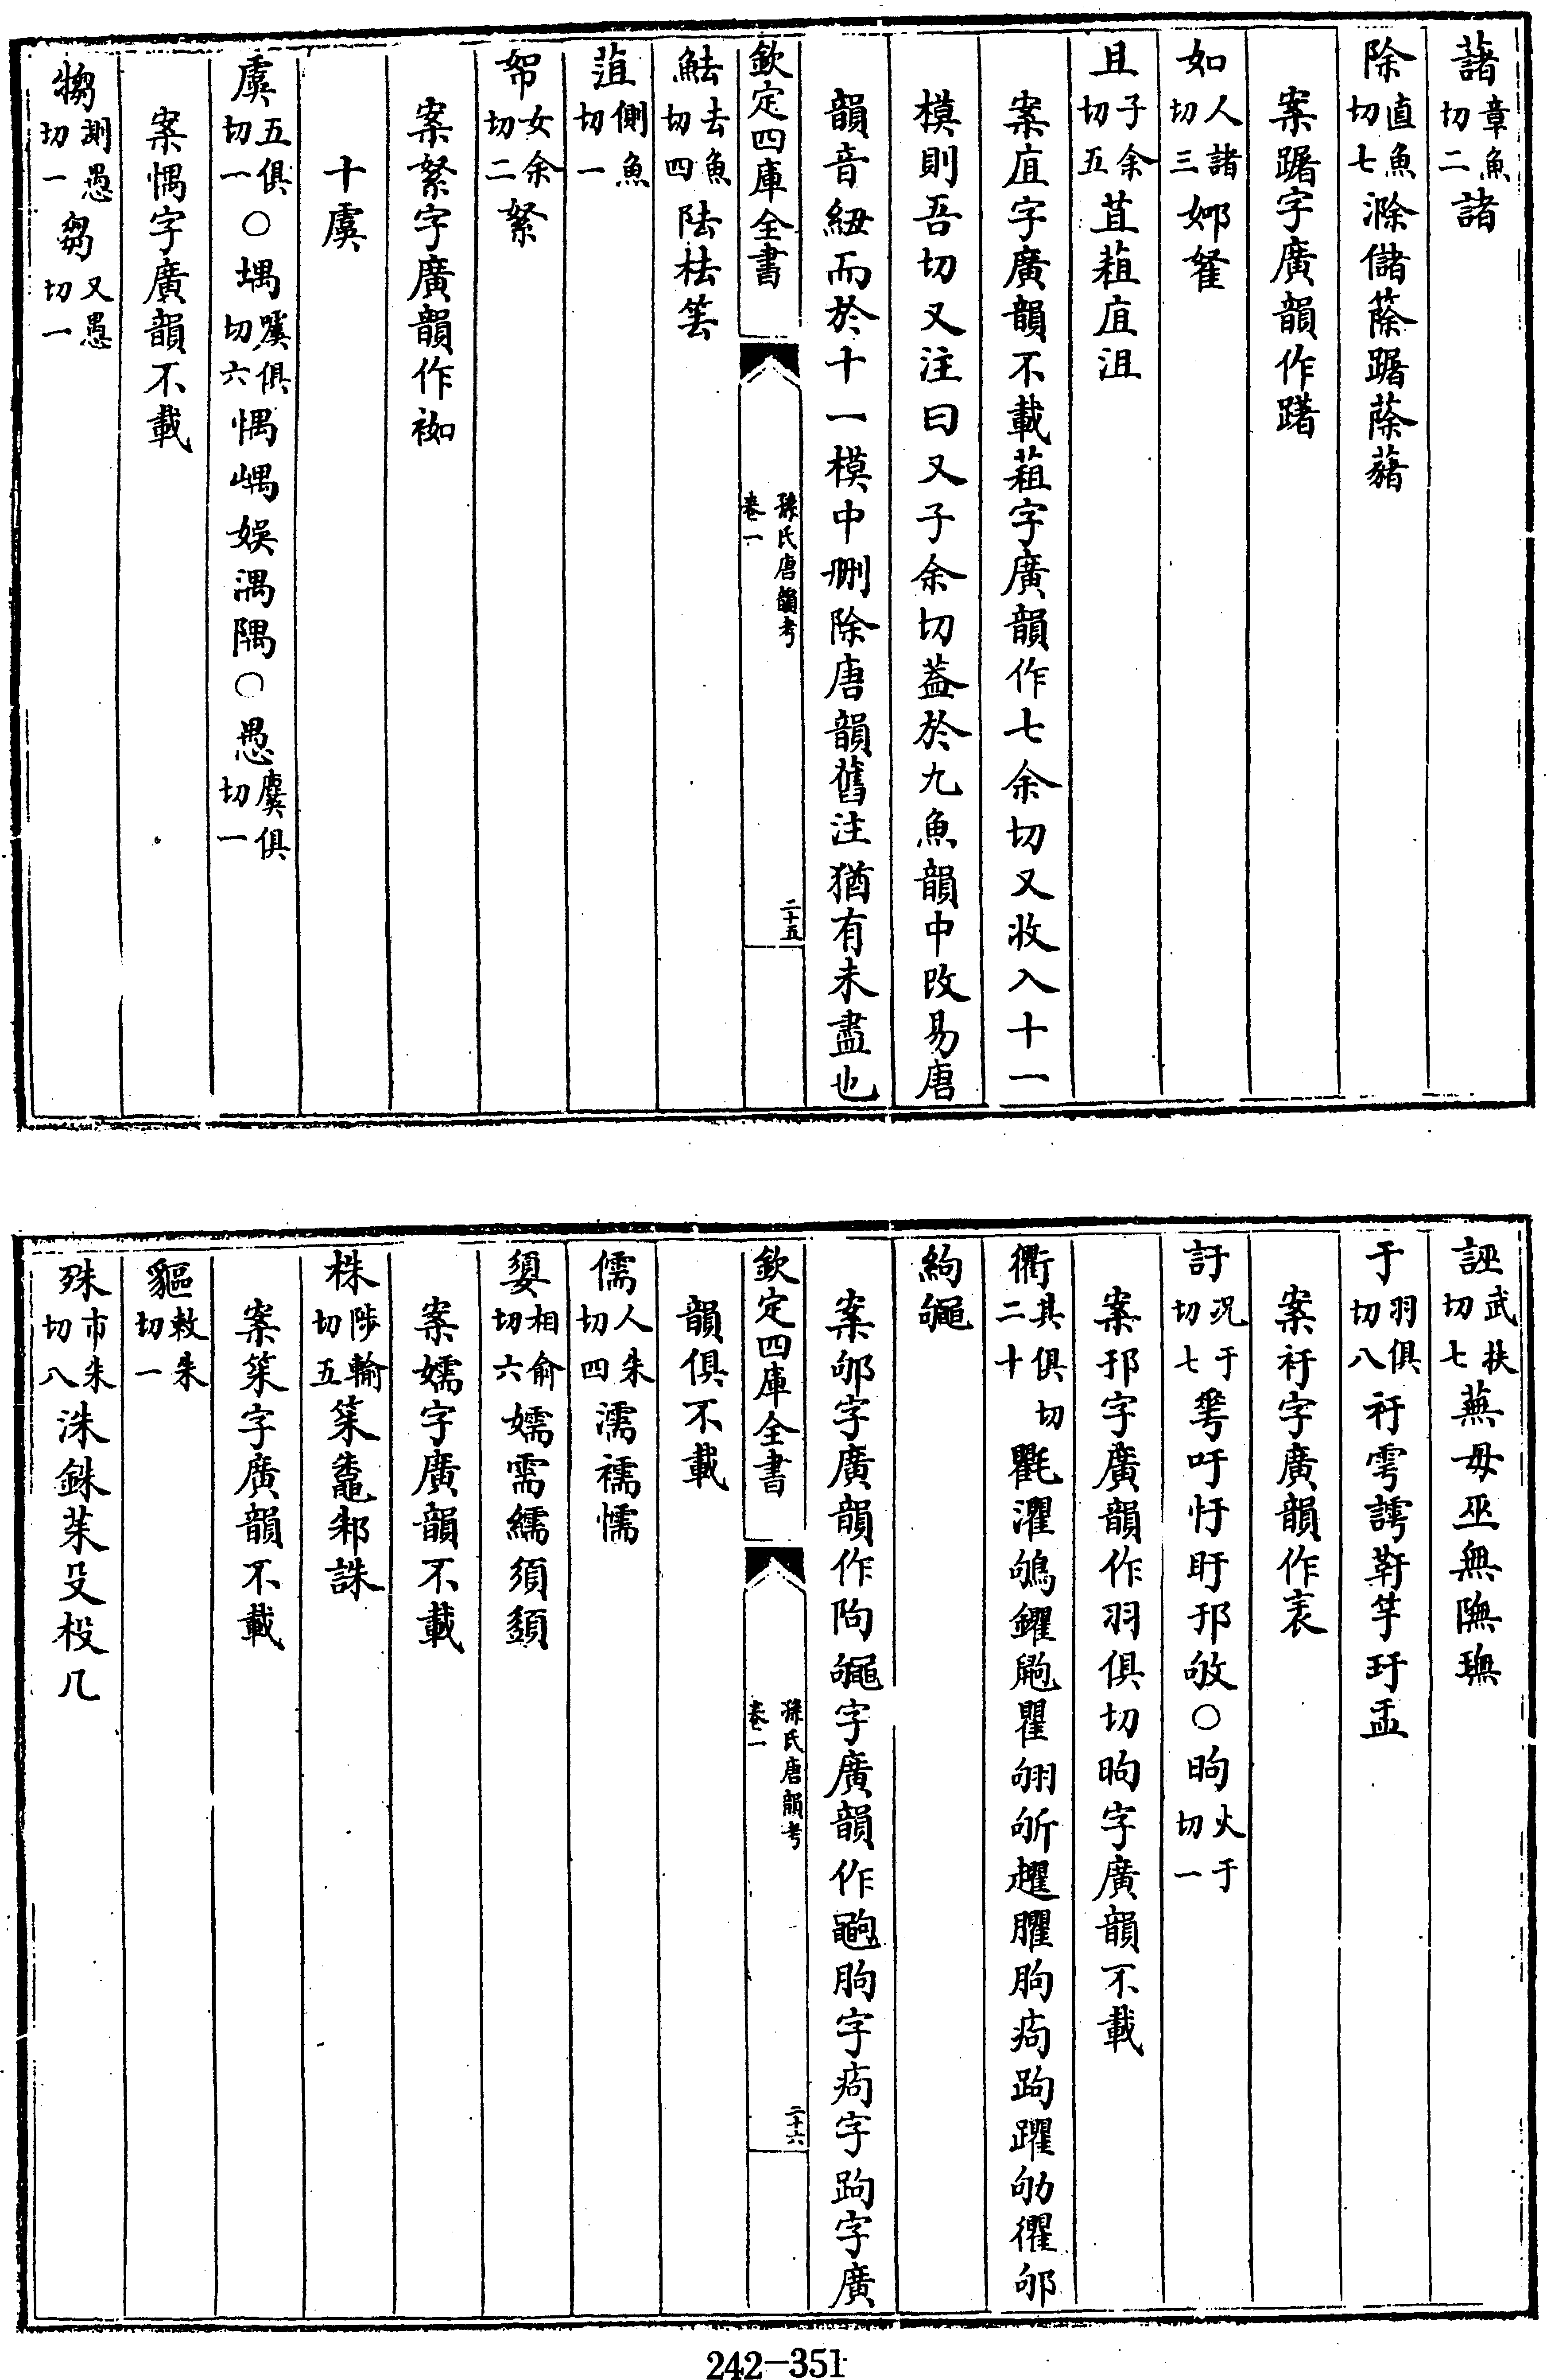 藷章魚切二諸
除直魚切七滁儲蒢躇蒢藸
案躇字廣韻作躇
如人諸切三㚼䎡
且子余切五苴葅㡹沮
案㡹字廣韻不載葅字廣韻作七余切又收入十一
模則吾切又注曰又子余切葢於九魚韻中改易唐
韻音紐而於十一模中刪除唐韻舊注猶有未盡也
欽定四庫全書
孫氏唐韻考
卷一
二十五
魼去魚切四阹祛䇧
菹側魚切一
帤女余切二絮
案絮字廣韻作袽
十虞
虞五俱切一○堣噳俱切六惆嵎娛湡隅○愚麌俱切一
案惆字廣韻不載
犓測愚切一芻叉愚切一
誣武扶切七蕪毋巫無膴璑
于羽俱切八衧雩謣靬竽玗盂
案衧字廣韻作衺
訏況于切七䔢吁忬盱邘㰦○昫火于切一
案邘字廣韻作羽俱切昫字廣韻不載
衢其俱切二十氍灈鴝鑺鼩瞿翑斪趯臞朐痀跔躍劬忂䣱
絇䵶
案䣱字廣韻作䧁䵶字廣韻作䵶朐字痀字跔字廣
欽定四庫全書
孫氏唐韻考
卷一
二十六
韻俱不載
儒人朱切四濡襦懦
嬃相俞切六嬬需繻須䇓
案嬬字廣韻不載
株陟輸切五䇡鼄邾誅
案䇡字廣韻不載
貙敕朱切一
殊市朱切八洙銖茱殳杸几
242-351